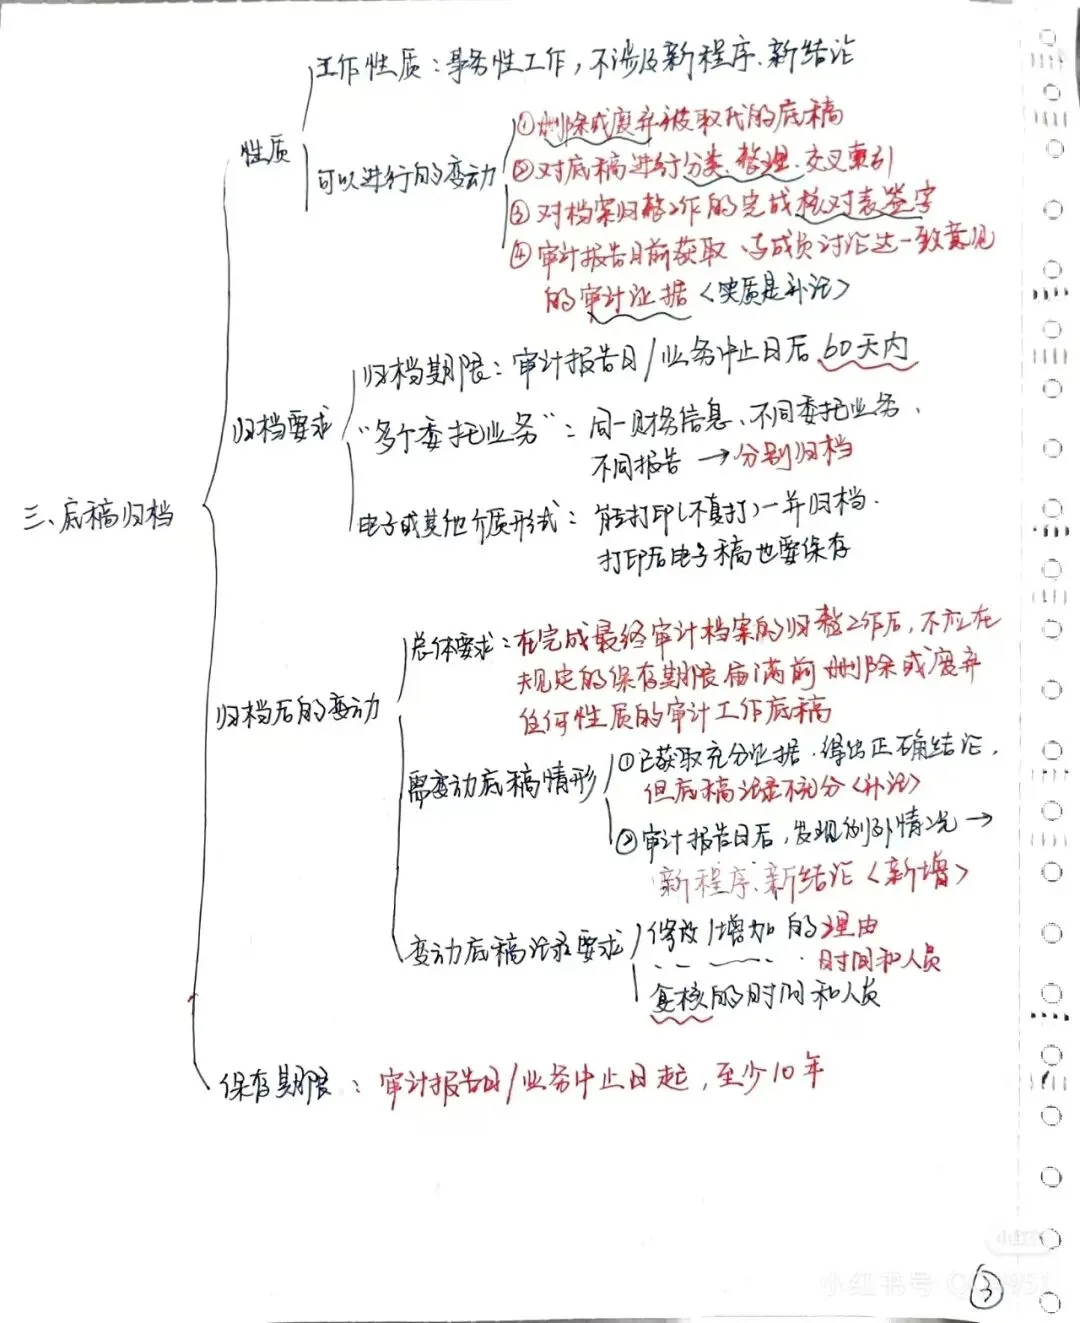 工作性质：事务性工作，不涉及新程序、新结论
性质
可以进行的变动
①删除或废弃被取代的底稿
②对底稿进行分类、整理、交叉索引
③对档案归整工作的完成核对表签字
④审计报告日前获取、与成员讨论达一致意见
的审计证据〈实质是补记〉
归档要求
归档期限：审计报告日/业务中止日后 60天内
“多个委托业务”：同一财务信息、不同委托业务、
不同报告 → 分别归档
电子或其他介质形式：能打印(不真打)一并归档.
打印后电子稿也要保存
三、底稿归档
归档后的变动
总体要求：在完成最终审计档案的归整工作后，不应在
规定的保存期限届满前删除或废弃
任何性质的审计工作底稿
需变动底稿情形
①已获取充分证据、得出正确结论，
但底稿记录不充分〈补记〉
②审计报告日后，发现例外情况→
新程序、新结论〈新增〉
变动底稿记录要求
修改/增加 的理由
时间和人员
复核的时间和人员
保存期限：审计报告日/业务中止日起，至少10年
③
小红书号